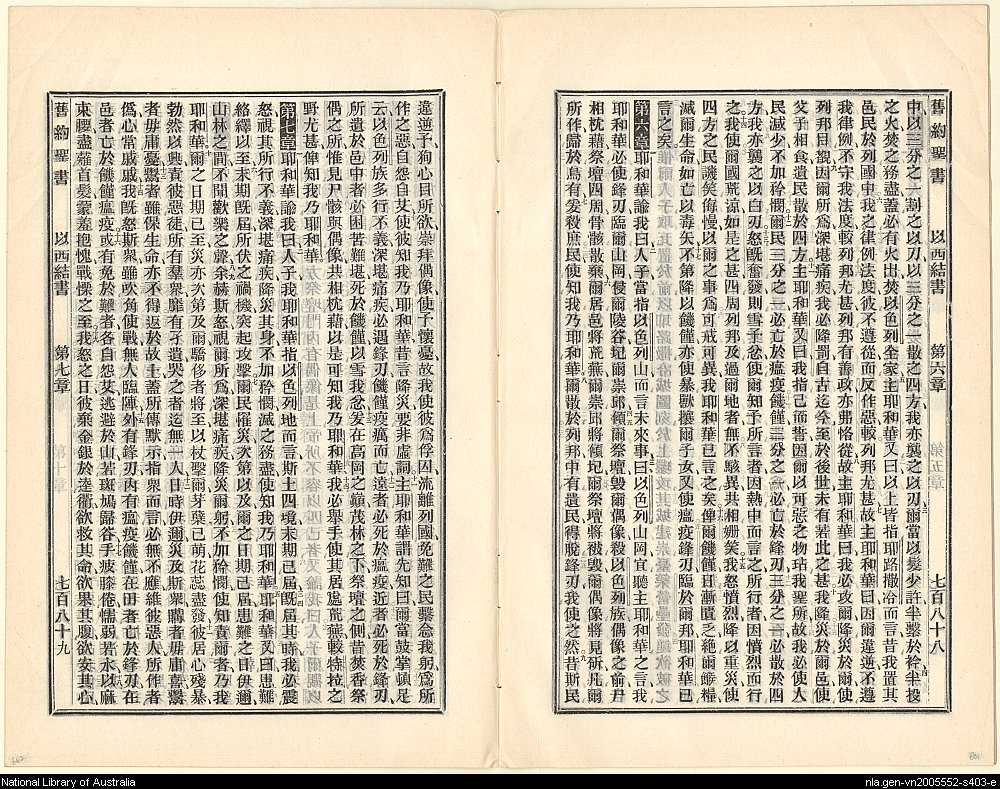 舊約聖書 以西結書 第六章 七百八十八
中以三分之一割之以刃以三分之一散之四方我亦襲之以刃爾當以髮少許半繫於衿半投
之火焚之務盡蓋必有火出焚以色列全家主耶和華又曰以上皆指耶路撒冷而言昔我置其
邑民於列國中我之律例法度彼不遵從而反作惡較列邦尤甚故主耶和華曰因爾違逆不遵
我律例不守我法度較列邦尤甚列邦有善政亦弗恪從故主耶和華曰我必攻爾降災於爾使
列邦目覩因爾所爲深堪痛疾我必降罰自古迄今至於後世未有若此之甚我降災於爾邑使
父子相食遺民散於四方主耶和華又曰我指己而誓因爾以可惡之物玷我聖所故我必使人
民減少不加矜憫爾民三分之一必亡於瘟疫饑饉三分之一必亡於鋒刃三分之一必散於四
方我亦襲之以白刃怒旣奮發則雪予忿使爾知予所言者因熱中而言之所行者因憤烈而行
之我使爾國荒涼如是之甚四周列邦及過爾地者無不駭異共相姍笑我怒憤烈降以重災使
四方之民譏笑侮慢以爾之事爲可戒可異我耶和華已言之矣俾爾饑饉日漸匱乏絕爾餱糧
滅爾生命如亡以毒矢不第降以饑饉亦使暴獸攘爾子女又使瘟疫鋒刃臨於爾邦耶和華已
言之矣
第六章 耶和華諭我曰人子當指以色列山而言未來事曰以色列山岡宜聽主耶和華之言我
耶和華必使鋒刃臨爾山岡侵爾陵谷圮爾崇邱傾爾祭壇毀爾偶像殺以色列族偶像之前尸
相枕藉祭壇四周骨骸散棄爾居邑將荒蕪爾崇邱將傾圮爾祭壇將被毀爾偶像將見斫凡爾
所作歸於烏有爰殺庶民使知我乃耶和華爾散於列邦中有遺民得脫鋒刃我使之然昔斯民
違逆予狥心目所欲崇拜偶像使予懷憂故我使彼爲俘囚流離列國免難之民繫念我躬爲所
作之惡自怨自艾使彼知我乃耶和華昔言降災要非虛詞主耶和華謂先知曰爾當鼓掌頓足
云以色列族多行不義深堪痛疾必遇鋒刃饑饉瘟疫而亡遠者必死於瘟疫近者必死於鋒刃
所遺於邑中者必困苦難堪死於饑饉以雪我忿爰在高岡之巔茂林之下祭壇之側昔焚香祭
偶之所惟見尸骸與偶像共相枕藉以是可知我乃耶和華我必舉手使其居處荒蕪較特拉之
野尤甚俾知我乃耶和華
第七章 耶和華諭我曰人子我耶和華指以色列地而言斯土四境末期已屆旣屆其時我必震
怒視其所行不義深堪痛疾降災其身不加矜憫滅之務盡使知我乃耶和華耶和華又曰患難
絡繹以至末期旣屆所伏之禍機突起攻擊爾民罹災次第以及爾之日期已屆患難之日伊邇
山林之間不聞歡樂之聲余赫斯怒視爾所爲深堪痛疾降災爾躬不加矜憫使知責爾者乃我
耶和華爾之日期已至災亦次第及爾驕侈者將至以杖擊爾芽櫱已萌花蕊盡發彼居心殘暴
勃然以興責彼惡徒所有羣衆靡有孑遺哭之者迄無一人日時伊邇災及斯衆購者毋庸喜鬻
者毋庸憂鬻者雖保生命亦不得返於故土蓋所傳默示指衆而言必無不應維彼惡人所作者
僞心常戚戚我旣怒斯衆雖吹角使戰無人臨陣外有鋒刃內有瘟疫饑饉在田者亡於鋒刃在
邑者亡於饑饉瘟疫或有免於難者各自怨艾逃避於山若斑鳩鳴谷手疲膝倦懦弱若水以麻
束腰盡薙首髮蒙羞抱愧戰慄之至我怒之日彼棄金銀於逵衢欲救其命欲果其腹欲安其心
舊約聖書 以西結書 第七章 七百八十九
National Library of Australia
nla.gen-vn2005552-s403-e